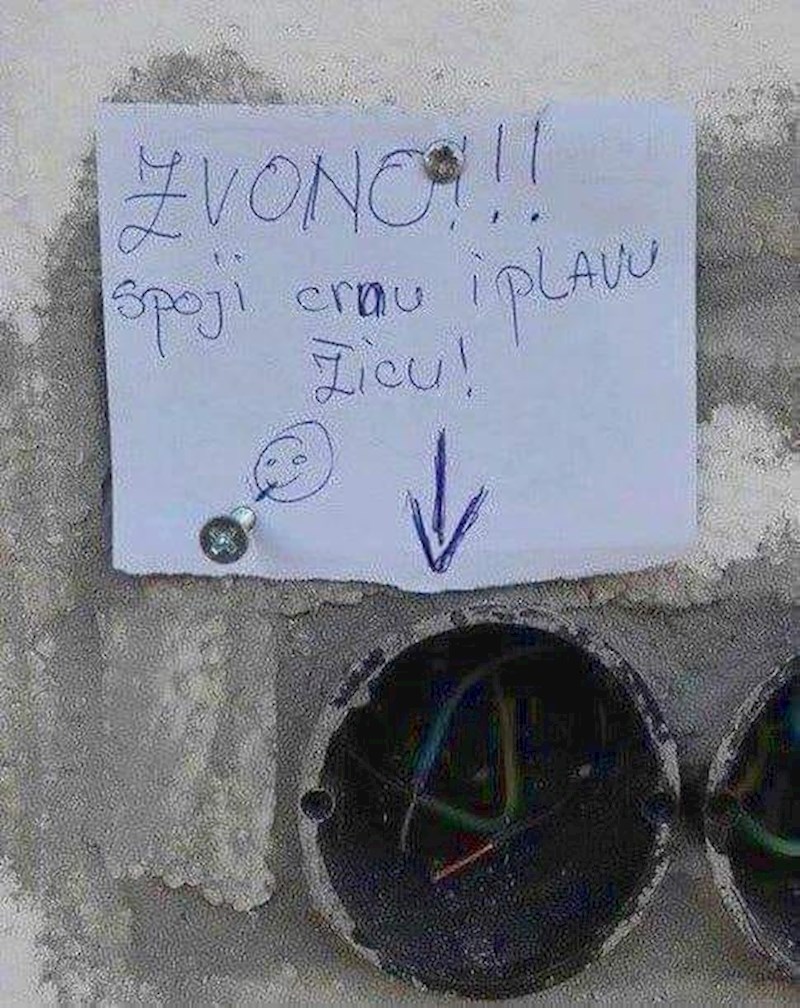 ZVONO!!!
spoji crnu i plAVU
žicu!